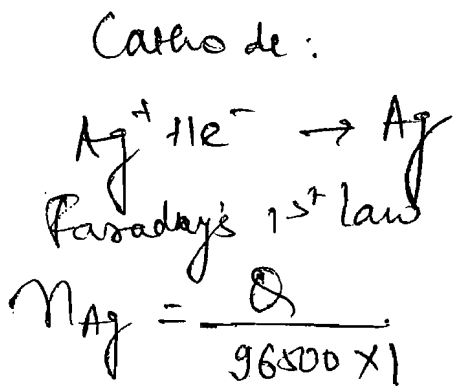 Cathode:
Ag⁺ + 1e⁻ → Ag
Faraday's 1st law
n_Ag = Q / (96500 × 1)